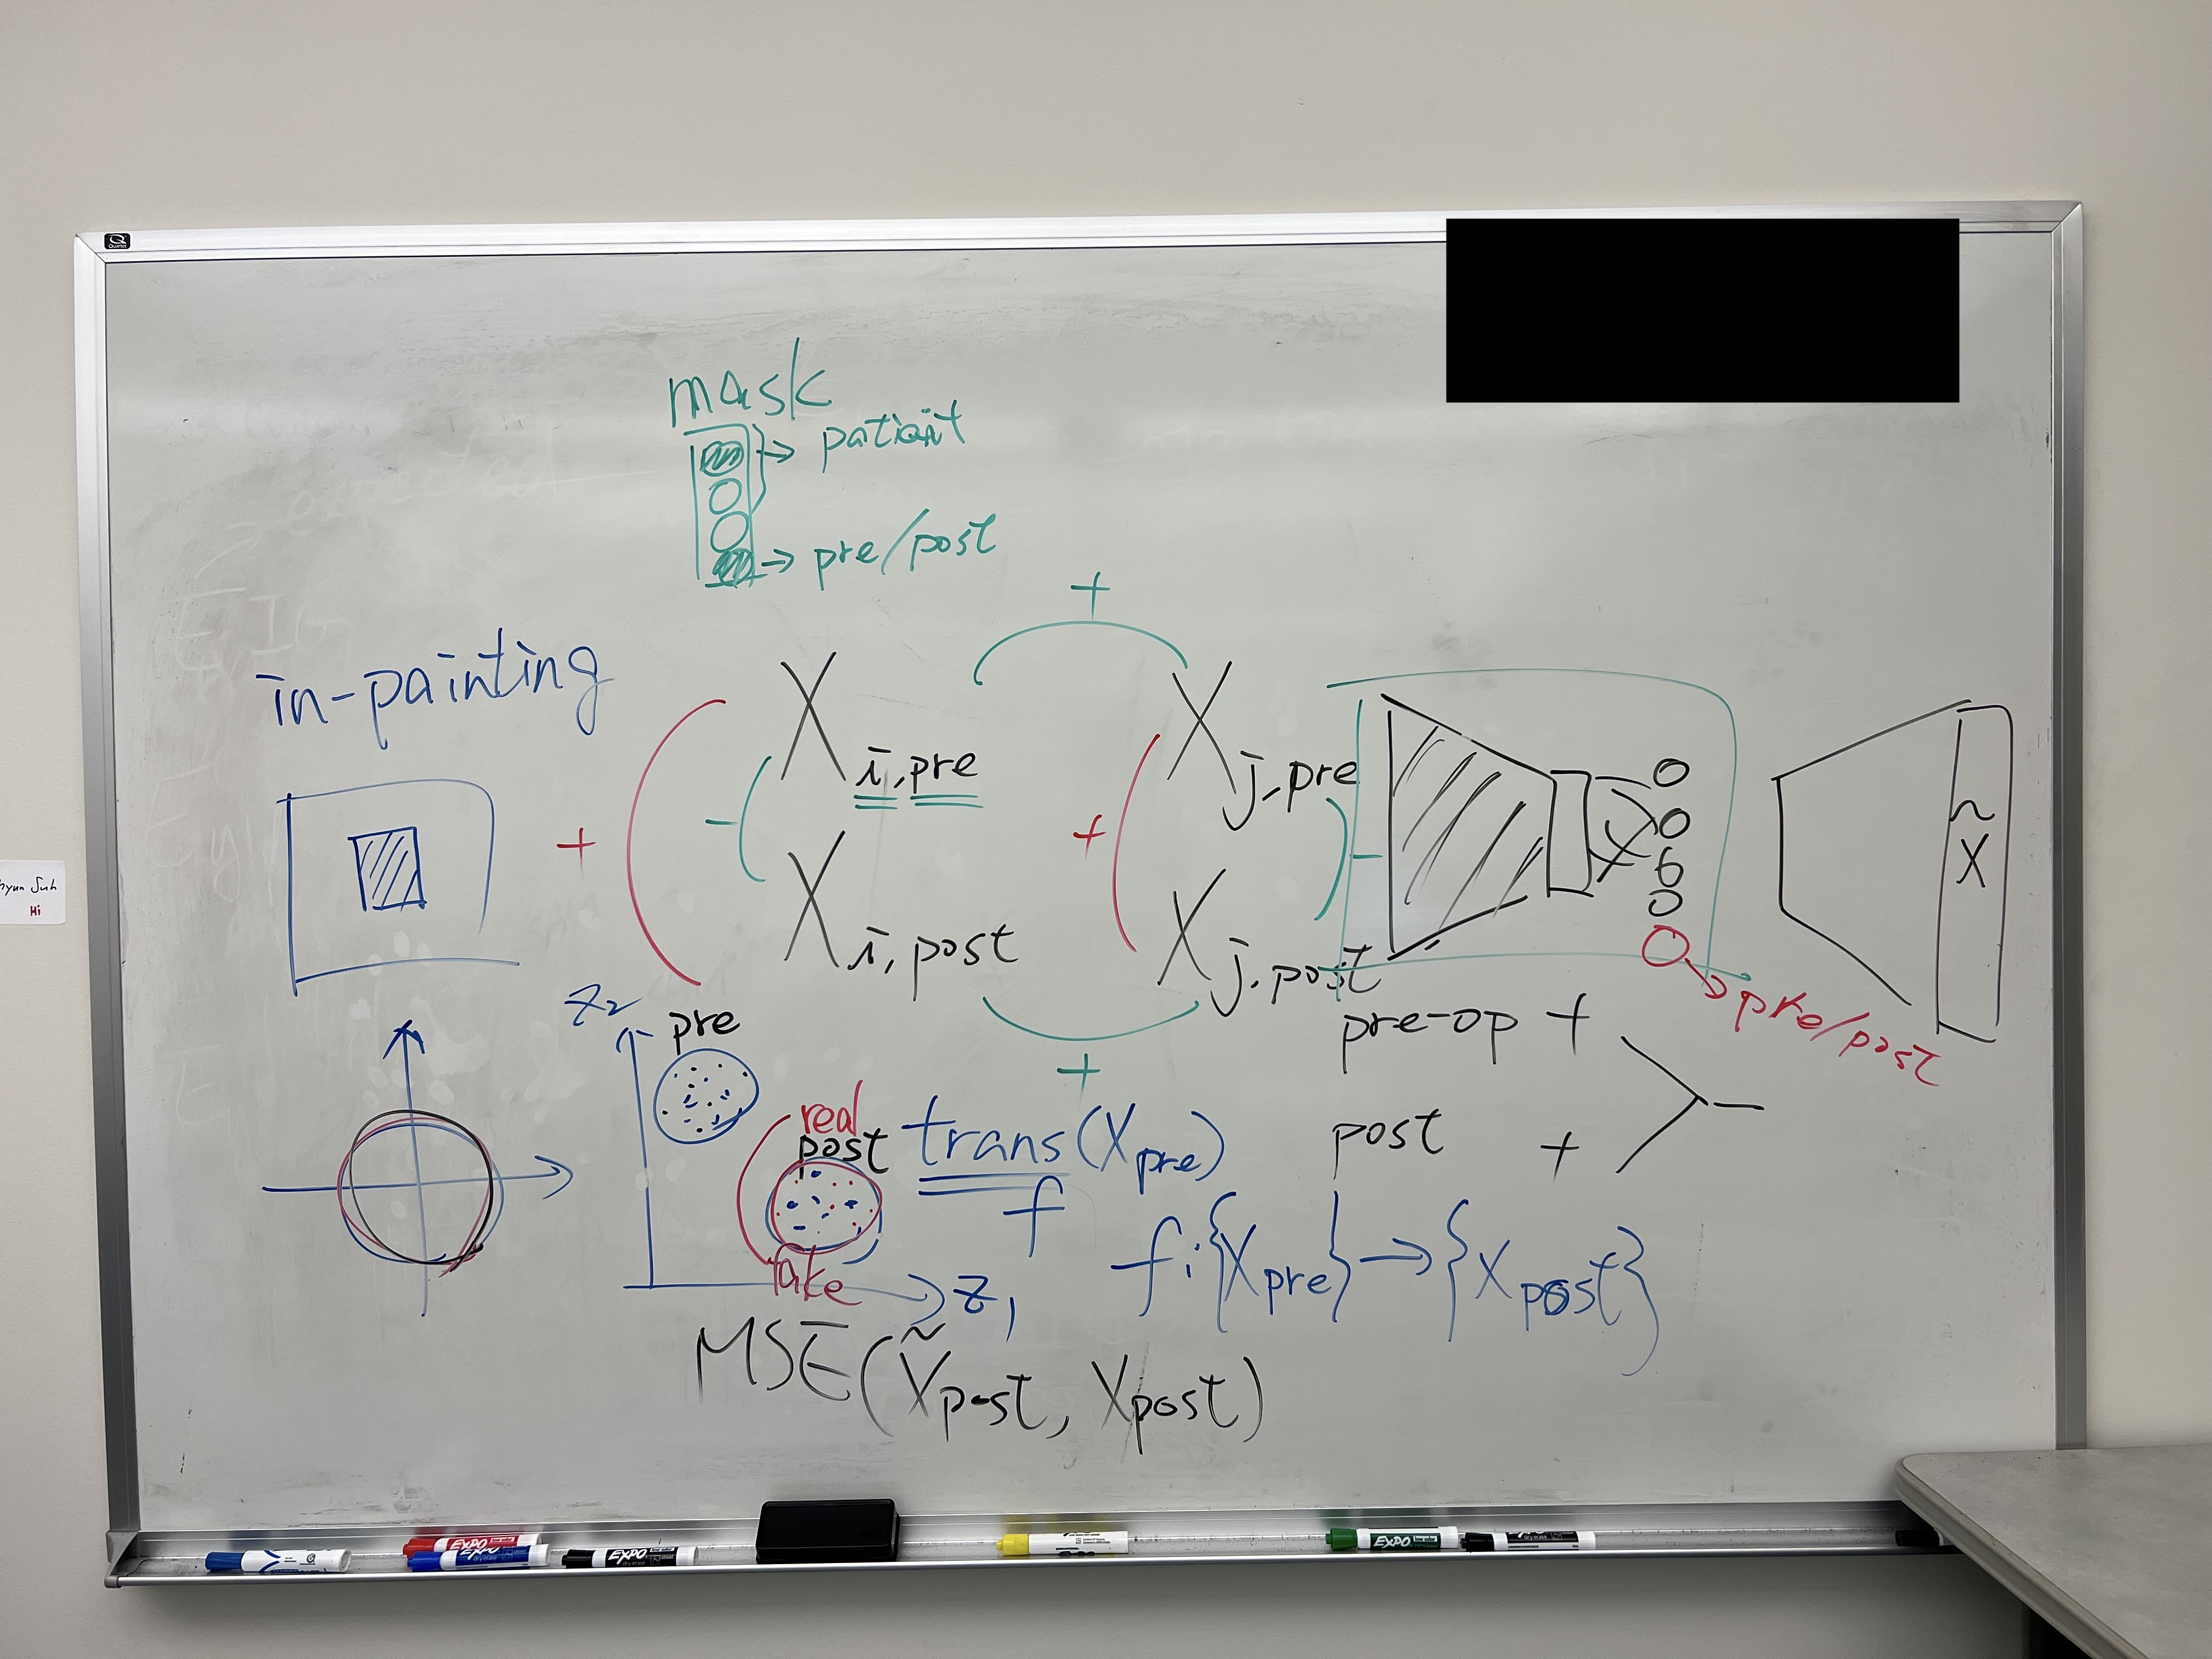 mask
patient
pre/post
+
in-painting
X i,pre
X j,pre
+
-
+
-
X̃
X i,post
X j,post
pre/post
+
pre-op +
post +
-
z₂
pre
real
post
fake
z₁
trans(Xpre)
f
f: {Xpre} → {Xpost}
MSE(X̃post, Xpost)
hyun Suh
Hi
EXPO
EXPO
EXPO
EXPO